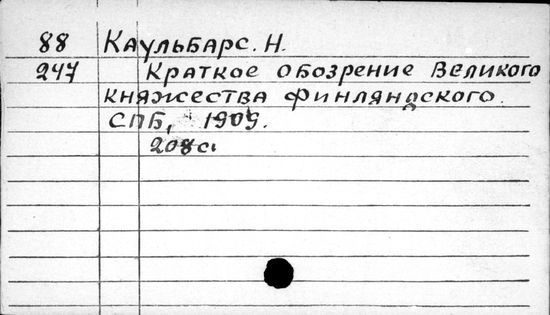 88 Каульбарс. Н.
247 Краткое обозрение Великого
княжества Финляндского.
СПБ, 1909.
208с.